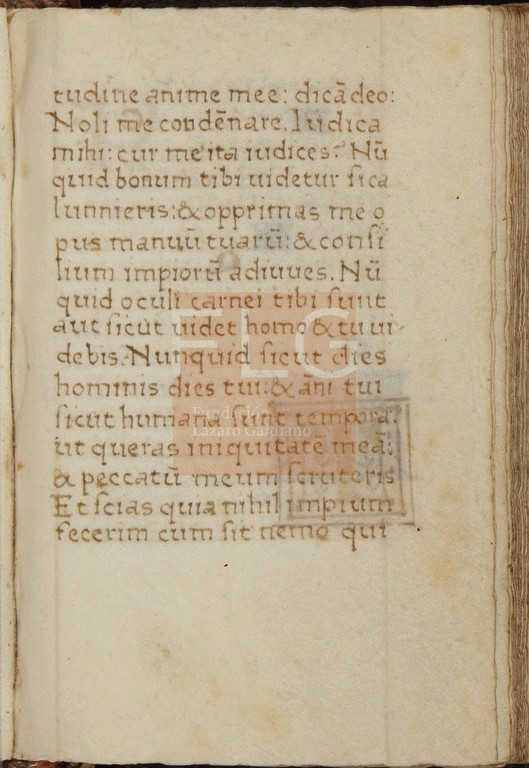 tudine anime mee: dicā deo:
Noli me condēnare. Iudica
mihi: cur me ita iudices? Nū
quid bonum tibi uidetur si ca
lunnieris: & opprimas me o
pus manuū tuarū: & consi
lium impiorū adiuues. Nū
quid oculi carnei tibi sunt
aut sicut uidet homo & tu ui-
debis. Nunquid sicut dies
hominis dies tui: & ani tui
sicut humana sunt tempora?
ut queras iniquitatē meā:
& peccatū meum scruteris
Et scias quia nihil impium
fecerim cum sit nemo qui
FLG
Fundación
Lázaro Galdiano